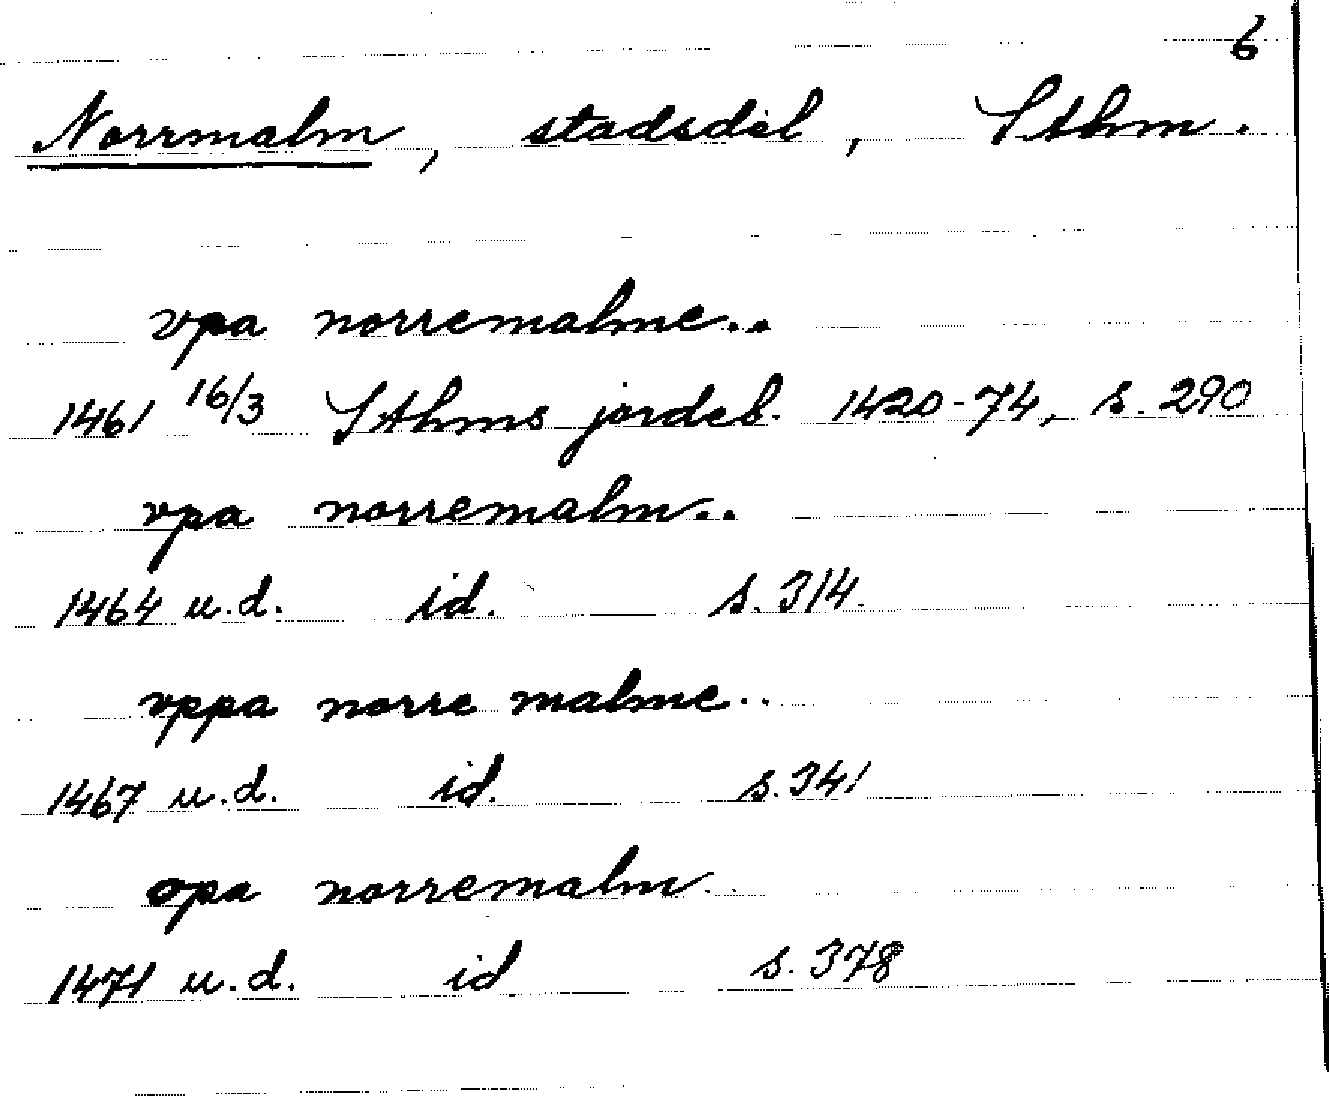 6
Norrmalm, stadsdel, Sthm.
vpa norremalme..
1461 16/3 Sthms jordeb. 1420-74, s. 290
vpa norremalm..
1464 u.d. id. s. 314.
vppa norre malme..
1467 u.d. id. s. 341
opa norremalm..
1471 u.d. id s. 378